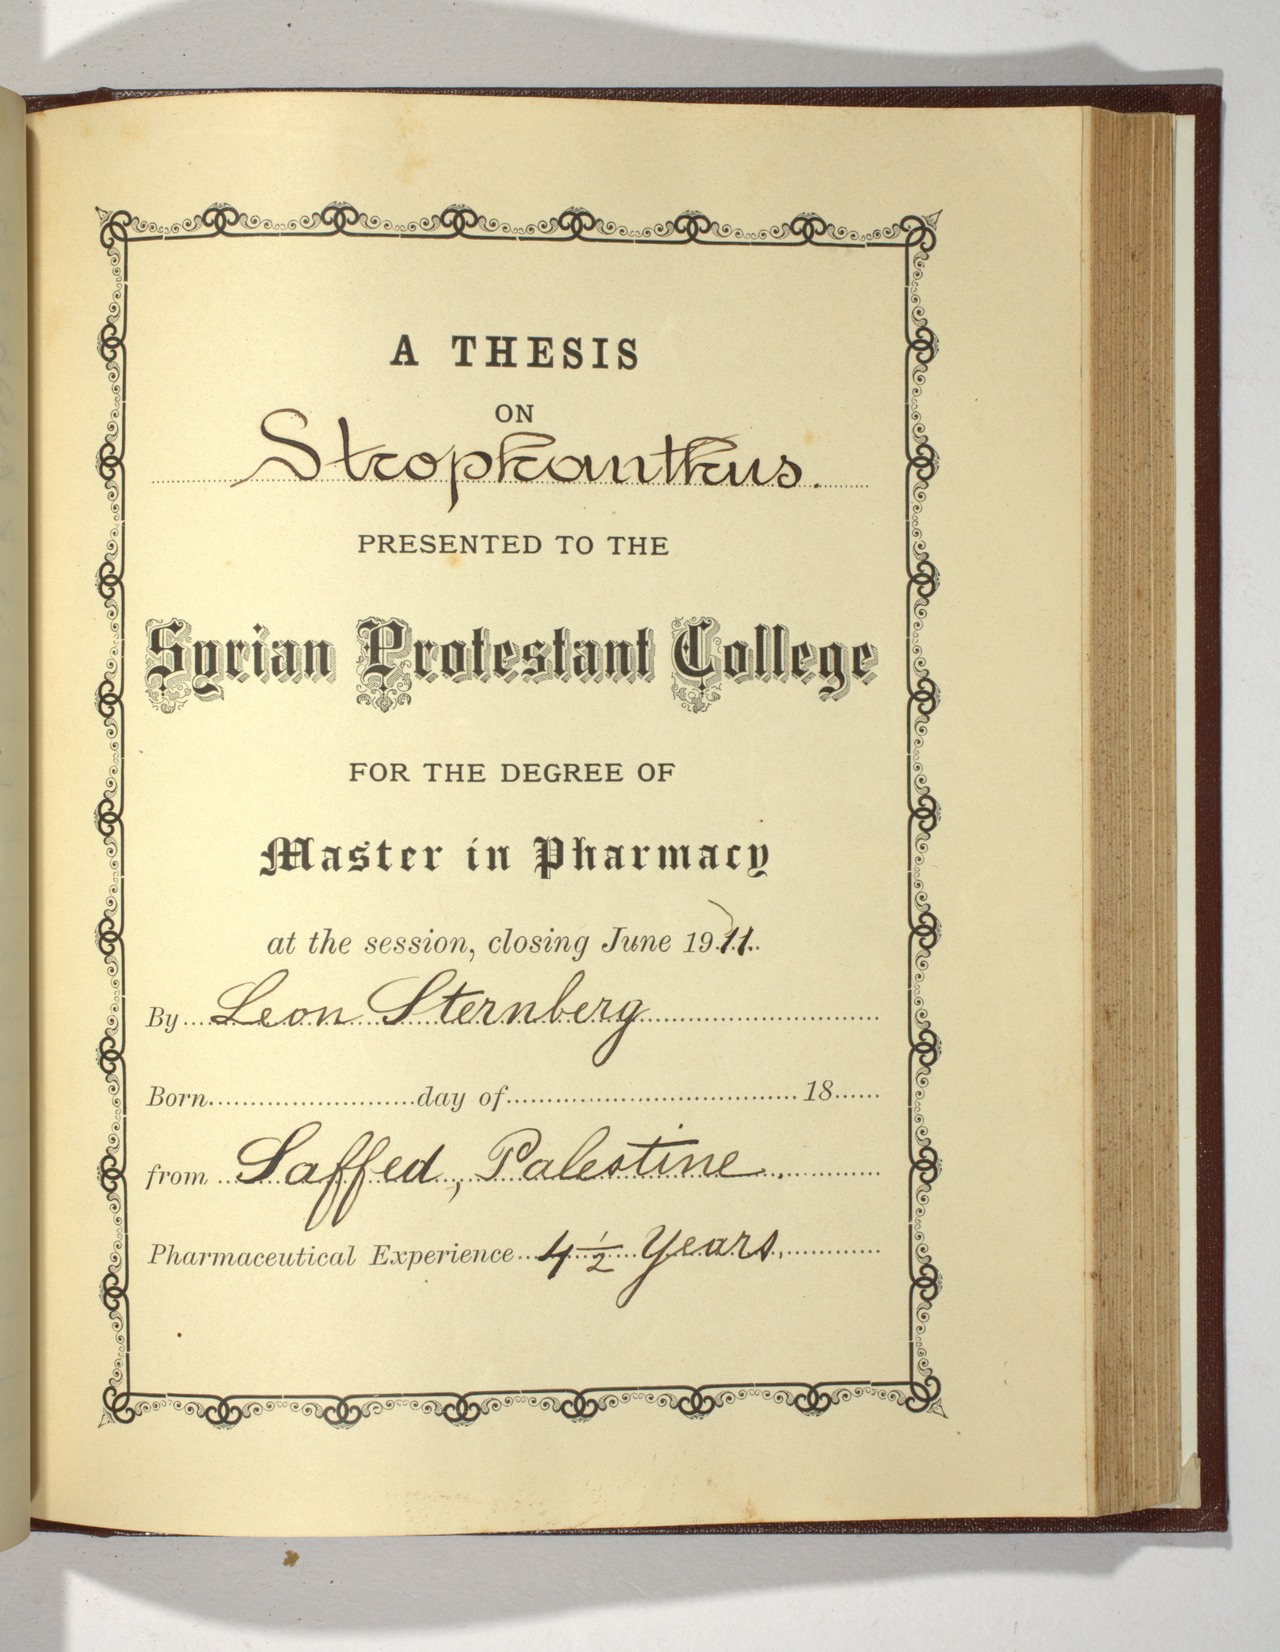 A THESIS
ON
Strophanthus.
PRESENTED TO THE
Syrian Protestant College
FOR THE DEGREE OF
Master in Pharmacy
at the session, closing June 1911.
By Leon Sternberg
Born........................day of.................................. 18......
from Saffed, Palestine.
Pharmaceutical Experience 4 1/2 Years.